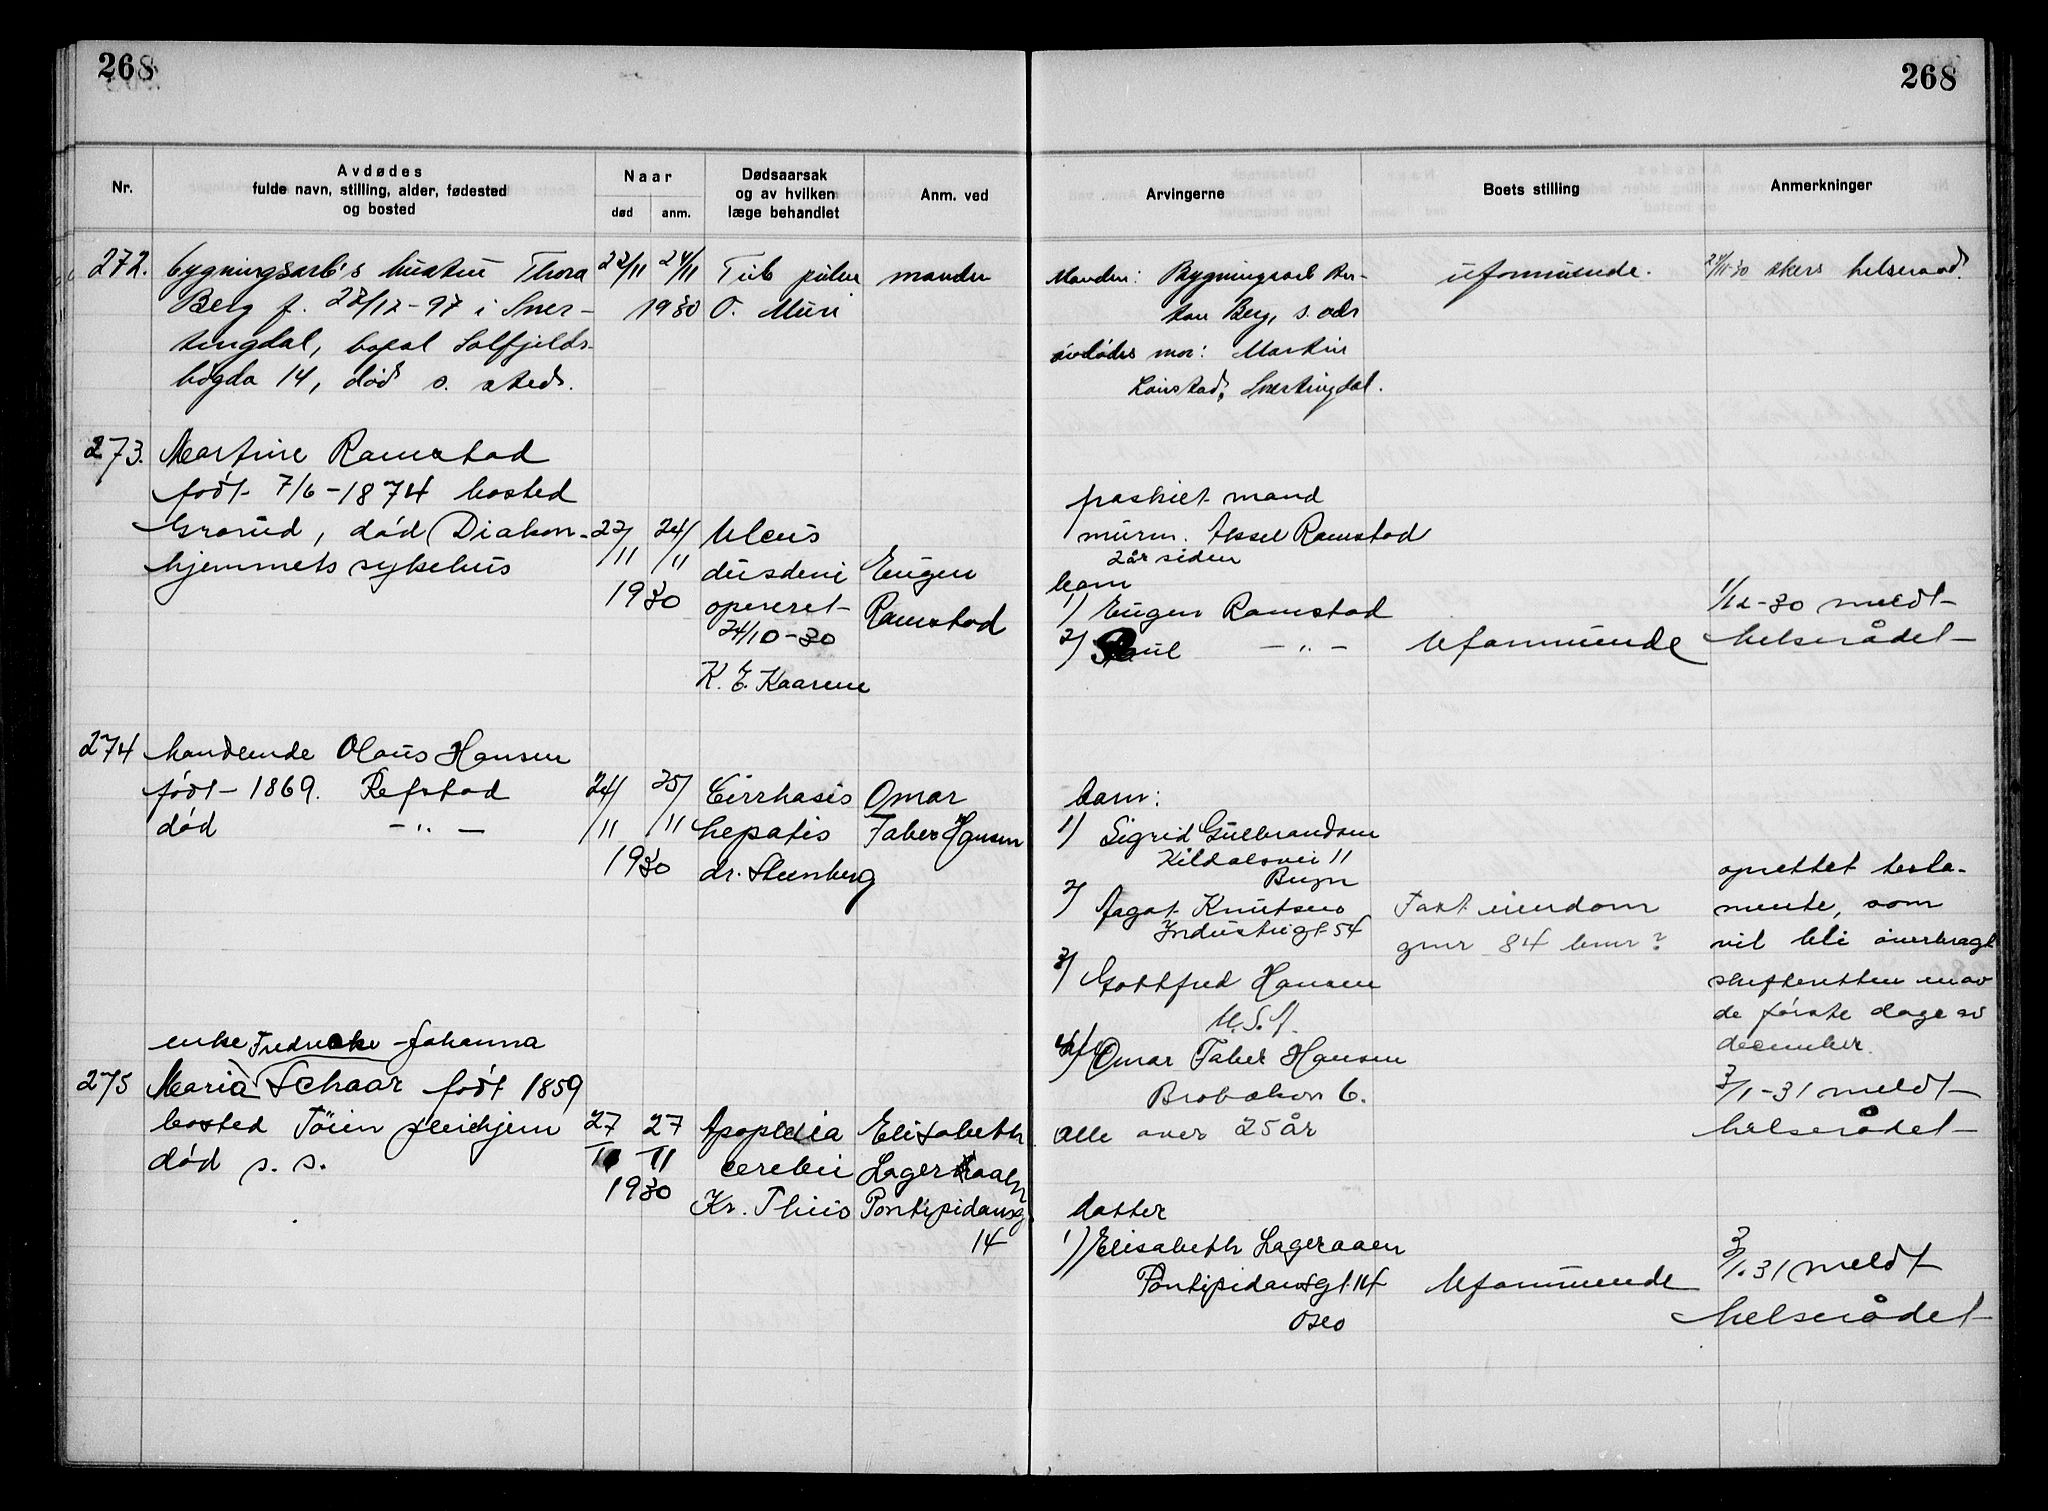 268
268
Nr.
Avdødes
fulde navn, stilling, alder, fødested
og bosted
Naar
død
anm.
Dødsaarsak
og av hvilken
læge behandlet
Anm. ved
Arvingerne
Boets stilling
Anmerkninger
272. bygningsarb's hustru Thora
Berg f. 27/12-97 i Sner-
tingdal, bopal Solfjelds-
høgda 14, død s. sted.
22/11 24/11
1930
Tub pulm
O. Muri
manden
Manden: Bygningsarb
Berg, s. adr
avdødes mor: Martin
Snertingdal.
uformuende.
24/11-30 Akers helseraad.
273. Martine Ramstad
født 7/6-1874 bosted
Grorud, død Diakon-
hjemmets sykehus
22/11 24/11
1930
Ulcus
duodeni
operert
24/10-30
K. E. Kaarene
Eugen
Ramstad
fraskilt mand
murm. Aksel Ramstad
2 år siden
barn
1) Eugen Ramstad
2) Paul —"—
Uformuende
1/12-30 meldt
helserådet
274 handlende Olaus Hansen
født 1869. Refstad
død —"—
24/11 25/11
1930
Cirrhosis
hepatis
dr. Steenberg
Omar
Faber Hansen
barn:
1) Sigrid Gulbrandsen
Kildalsvei 11
Bryn
2) Aagot Knutsen
Industrigt 54
3) Gottfred Hansen
U.S.A.
4) Omar Faber Hansen
Brobekvn 6.
Alle over 25 år
Fast eiendom
gnr 84 bnr?
oprettet testa-
mente, som
vil bli overbragt
skifteretten en av
de første dage av
december.
3/1-31 meldt
helserådet
enke Fredrikke Johanna
275 Maria Schaar født 1859
bosted Töien pleiehjem
død s. s.
27/11 27/11
1930
Apoplexia
cerebri
Kr. Thiis
Elisabeth
Lageraaen
Pontopidansg
14
datter
1) Elisabeth Lageraaen
Pontopidansgt. 14
Oslo
Uformuende
3/1.31 meldt
helserådet